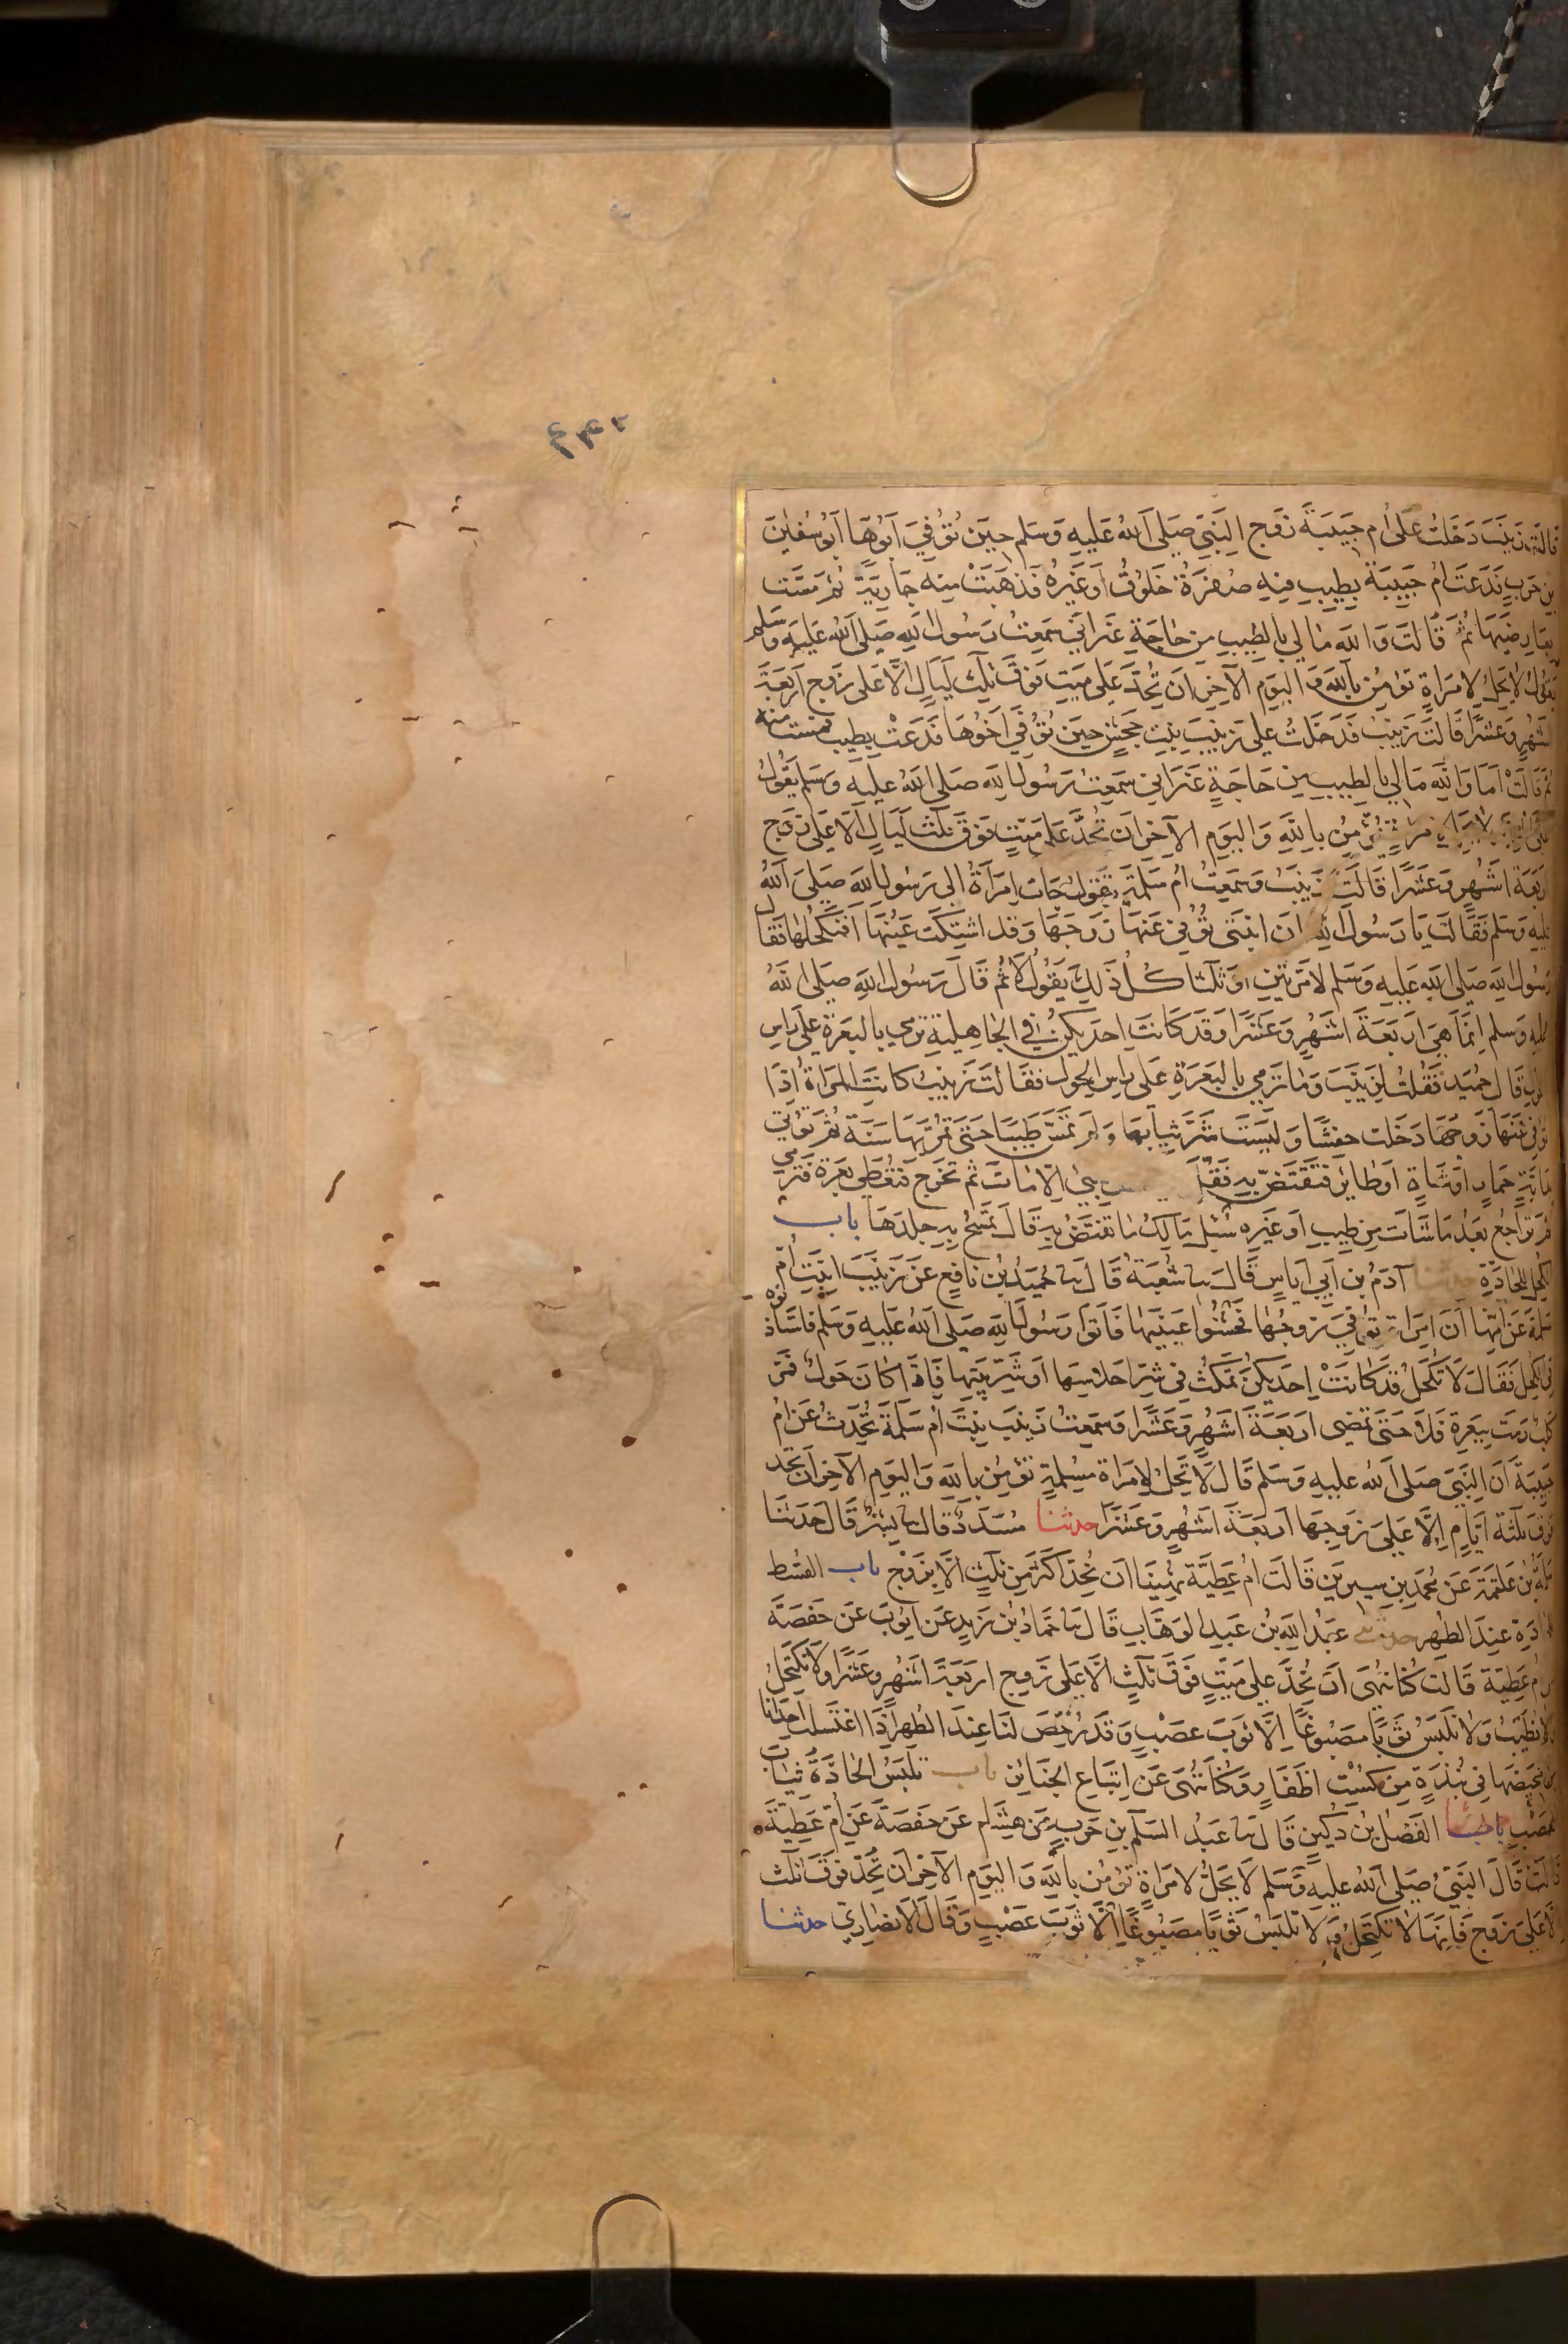 ۴۴۲
قالت زينب دخلت على ام حبيبة زوج النبي صلى الله عليه وسلم حين توفي ابوها ابو سفين
بن حرب فدعت ام حبيبة بطيب فيه صفرة خلوق او غيره فدهنت منه جارية ثم مست
بعارضيها ثم قالت والله مالي بالطيب من حاجة غير اني سمعت رسول الله صلى الله عليه وسلم
يقول لا يحل لامراة تؤمن بالله و اليوم الآخر ان تحد على ميت فوق ثلث ليال الا على زوج اربعة
اشهر وعشرا قالت زينب فدخلت على زينب بنت جحش حين توفي اخوها فدعت بطيب فمست منه
ثم قالت اما والله مالي بالطيب من حاجة غير اني سمعت رسول الله صلى الله عليه وسلم يقول
تؤمن بالله واليوم الآخر ان تحد على ميت فوق ثلث ليال الا على زوج
اربعة اشهر وعشرا قالت زينب وسمعت ام سلمة تقول جات امرأة الى رسول الله صلى الله
عليه وسلم فقالت يا رسول الله ان ابنتي توفي عنها زوجها وقد اشتكت عينها افنكحلها فقال
رسول الله صلى الله عليه وسلم لا مرتين او ثلثا كل ذلك يقول لا ثم قال رسول الله صلى الله
عليه وسلم انما هي اربعة اشهر وعشرا وقد كانت احديكن في الجاهلية ترمي بالبعرة على راس
قال حميد فقلت لزينب وما ترمي بالبعرة على راس الحول فقالت زينب كانت المراة اذا
توفي عنها زوجها دخلت حفشا ولبست شر ثيابها ولم تمس طيبا حتى تمر بها سنة ثم تؤتي
بدابة حمار او شاة او طائر فتفتض به فقل بشي الا مات ثم تخرج فتعطى بعرة فترمي
ثم تراجع بعد ما شات من طيب او غيره سئل مالك ما تفتض به قال تمسح به جلدها باب
الكحل للحادة حدثنا آدم بن ابي اياس قال نا شعبة قال نا حميد بن نافع عن زينب ابنت ام
سلمة عن امها ان امراة توفي زوجها فخشوا عينيها فاتوا رسول الله صلى الله عليه وسلم فاستاذنوه
في الكحل فقال لا تكحل قد كانت احديكن تمكث في شر احلاسها او شر بيتها فاذا كان حول فمر
كلب رمت ببعرة فلا حتى تمضي اربعة اشهر وعشرا وسمعت زينب بنت ام سلمة تحدث عن ام
حبيبة ان النبي صلى الله عليه وسلم قال لا يحل لامراة مسلمة تؤمن بالله واليوم الآخر ان تحد
فوق ثلثة ايام الا على زوجها اربعة اشهر وعشرا حدثنا مسدد قال نا بشر قال حدثنا
سلمة بن علقمة عن محمد بن سيرين قالت ام عطية نهينا ان نحد اكثر من ثلث الا بزوج باب القسط
للحادة عند الطهر حدثني عبد الله بن عبد الوهاب قال نا حماد بن زيد عن ايوب عن حفصة
عن ام عطية قالت كنا ننهى ان نحد على ميت فوق ثلث الا على زوج اربعة اشهر وعشرا ولا نكتحل
ولا نطيب ولا نلبس ثوبا مصبوغا الا ثوب عصب وقد رخص لنا عند الطهر اذا اغتسلت احدانا
من محيضها في نبذة من كست اظفار وكنا ننهى عن اتباع الجنائز باب تلبس الحادة ثياب
العصب حدثنا الفضل بن دكين قال نا عبد السلم بن حرب عن هشام عن حفصة عن ام عطية
قالت قال النبي صلى الله عليه وسلم لا يحل لامراة تؤمن بالله واليوم الآخر ان تحد فوق ثلث
الا على زوج فانها لا تكتحل ولا تلبس ثوبا مصبوغا الا ثوب عصب وقال الانصاري حدثنا